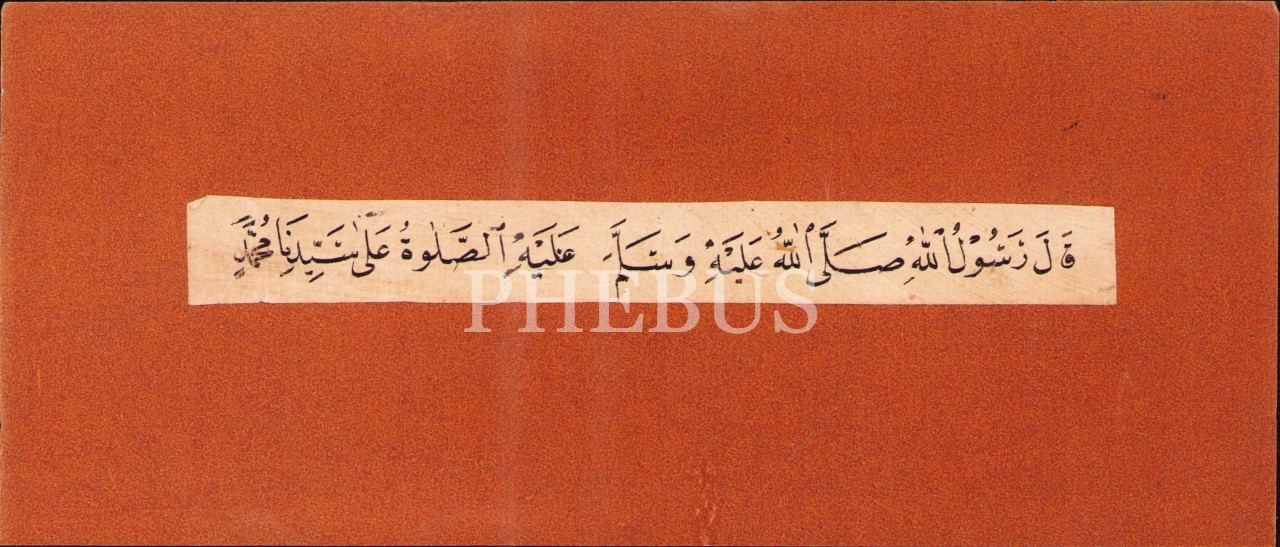 قَالَ رَسُوْلُ اللهِ صَلَّى اللهُ عَلَيْهِ وَسَلَّمَ عَلَيْهِ الصَّلٰوةُ عَلٰى سَيِّدِنَا مُحَمَّدٍ
PHEBUS